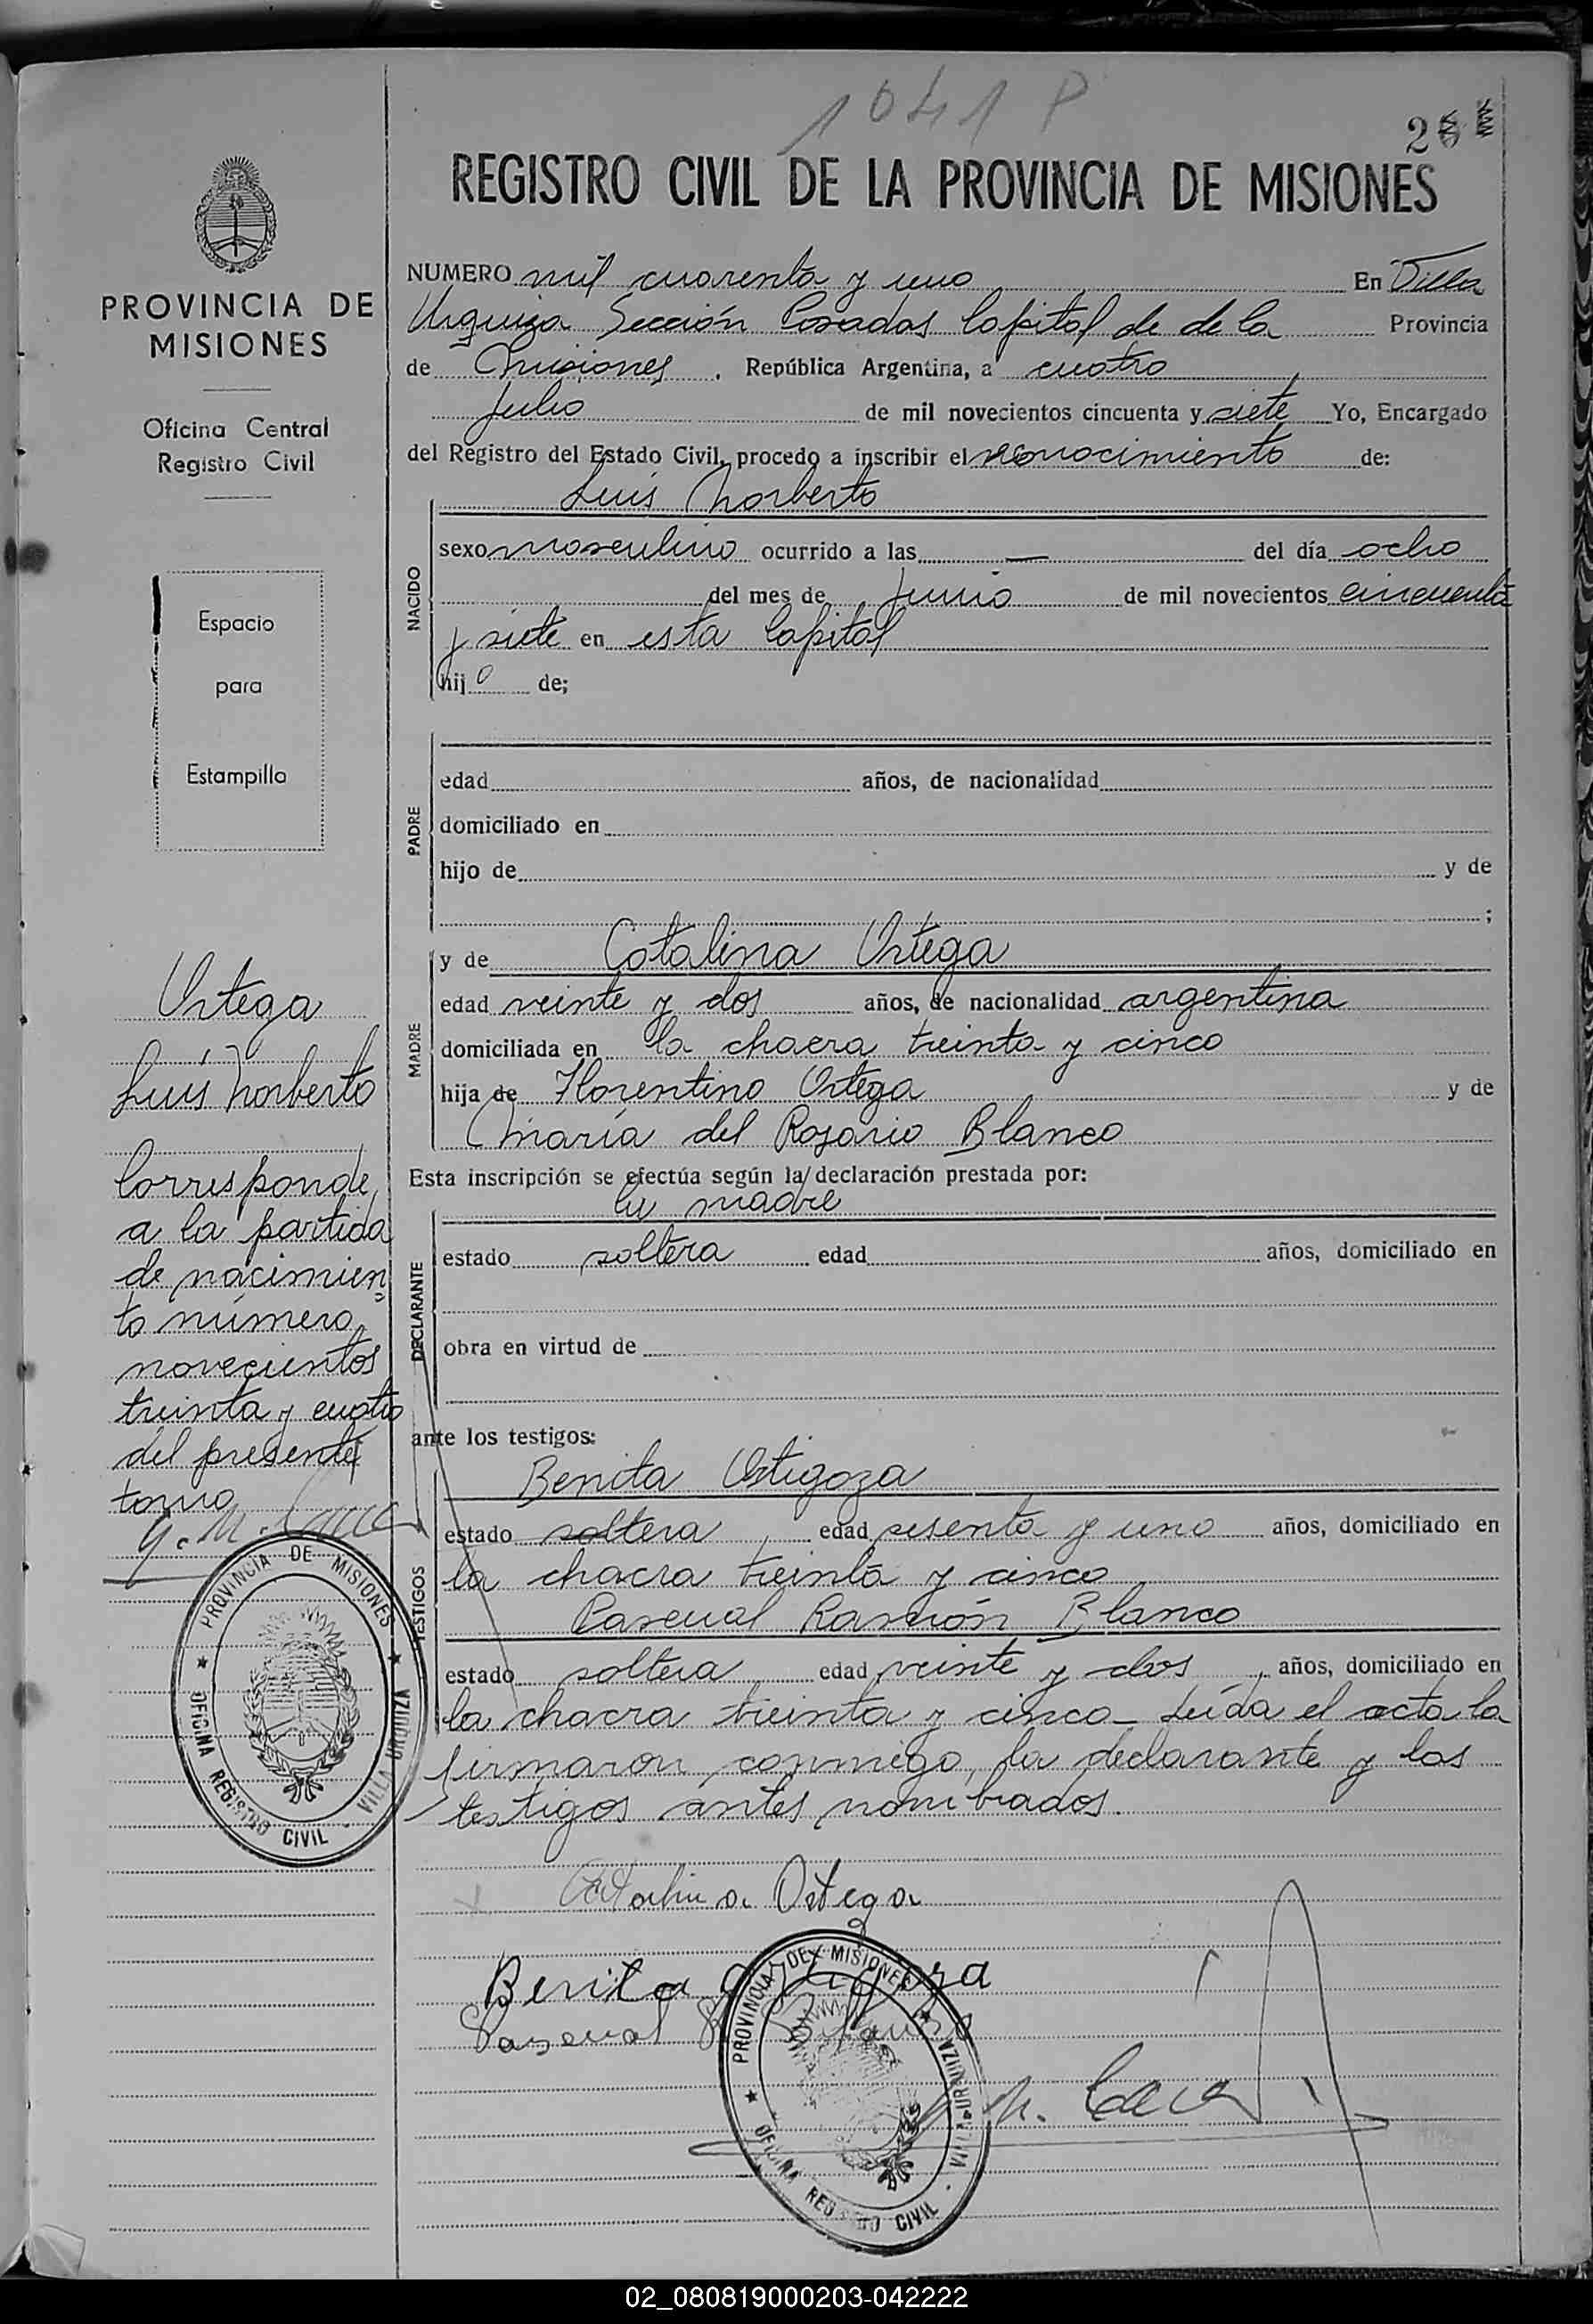 1041 P
2
REGISTRO CIVIL DE LA PROVINCIA DE MISIONES
PROVINCIA DE
MISIONES
Oficina Central
Registro Civil
Espacio
para
Estampilla
Ortega
Luis Norberto
Corresponde
a la partida
de nacimien
to número
novecientos
treinta y cuatro
del presente
tomo
PROVINCIA DE MISIONES
OFICINA REGISTRO CIVIL
VILLA URQUIZA
NUMERO mil cuarenta y uno En Villa
Urquiza Sección Posadas Capital de de la Provincia
de Misiones, República Argentina, a cuatro
Julio de mil novecientos cincuenta y siete Yo, Encargado
del Registro del Estado Civil, procedo a inscribir el reconocimiento de:
Luis Norberto
NACIDO
sexo masculino ocurrido a las — del día ocho
del mes de Junio de mil novecientos cincuenta
y siete en esta Capital
hijo de;
PADRE
edad años, de nacionalidad
domiciliado en
hijo de y de
;
MADRE
y de Catalina Ortega
edad veinte y dos años, de nacionalidad argentina
domiciliada en la chacra treinta y cinco
hija de Florentino Ortega y de
María del Rosario Blanco
Esta inscripción se efectúa según la declaración prestada por:
DECLARANTE
la madre
estado soltera edad años, domiciliado en
obra en virtud de
ante los testigos:
TESTIGOS
Benita Ortigoza
estado soltera edad sesenta y uno años, domiciliado en
la chacra treinta y cinco
Pascual Ramón Blanco
estado soltera edad veinte y dos, años, domiciliado en
la chacra treinta y cinco - Leída el acta la
firmaron conmigo, la declarante y los
testigos antes nombrados.
Catalina Ortega
Benita Ortigoza
Pascual R Blanco
PROVINCIA DE MISIONES
OFICINA REGISTRO CIVIL
VILLA URQUIZA
02_080819000203-042222